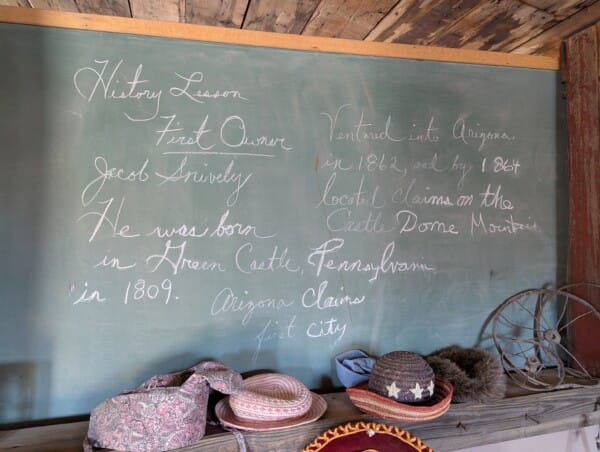 History Lesson
First Owner
Jacob Snively
He was born
in Green Castle, Pennsylvania
in 1809.
Ventured into Arizona
in 1862, and by 1864
located claims on the
Castle Dome Mountain
Arizona Claims
first City